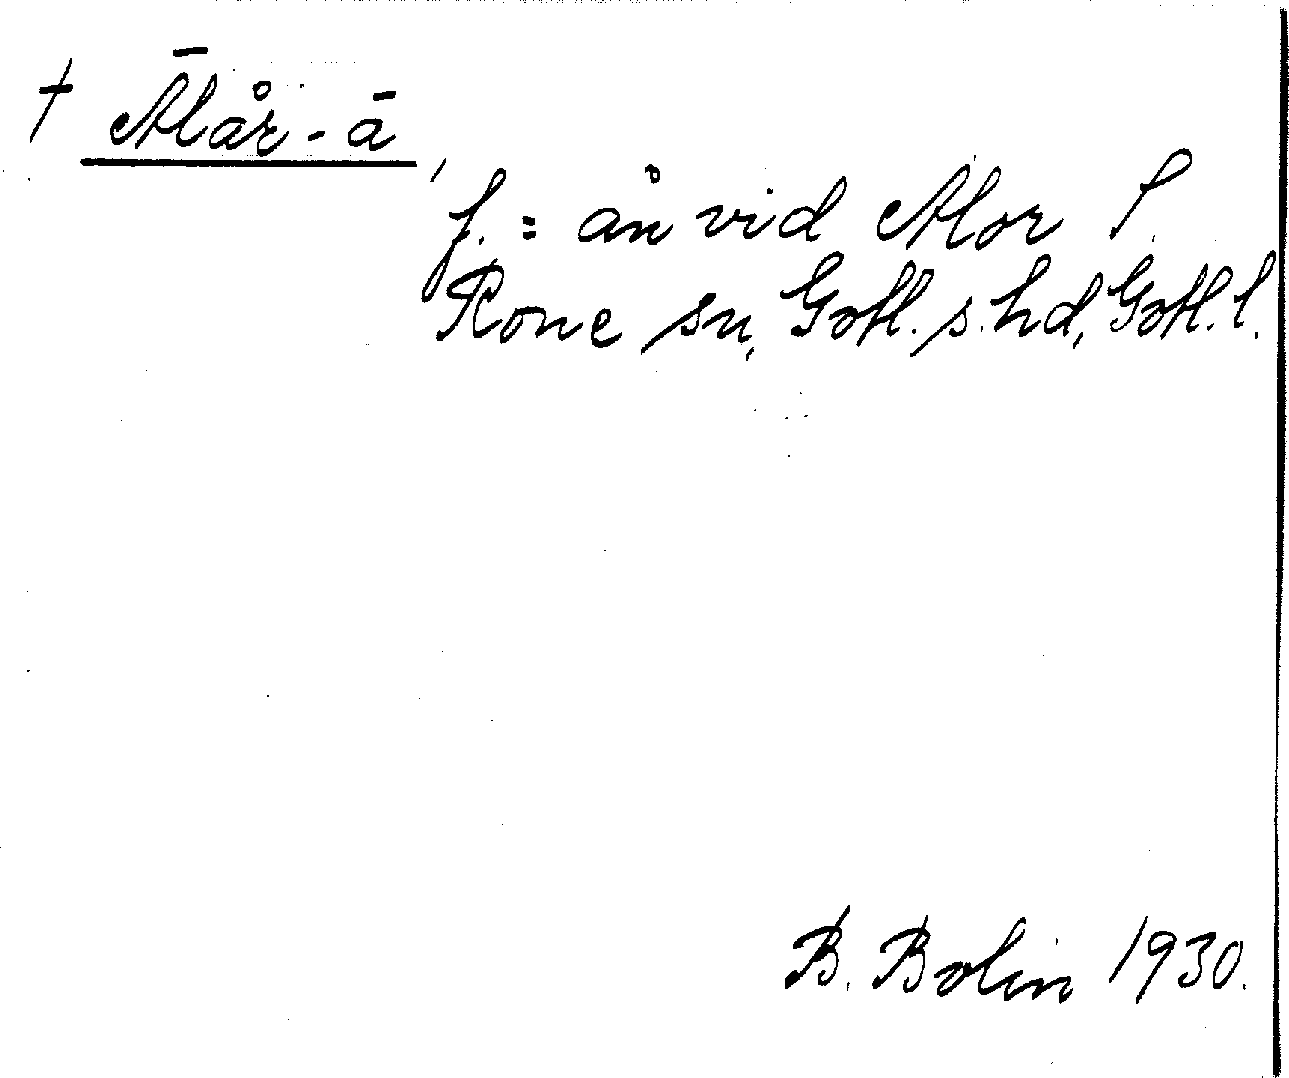 † Ālår-ā,
f. = ån vid Alor S.
Rone sn, Gotl. s. hd, Gotl. l.
B. Bolin 1930.